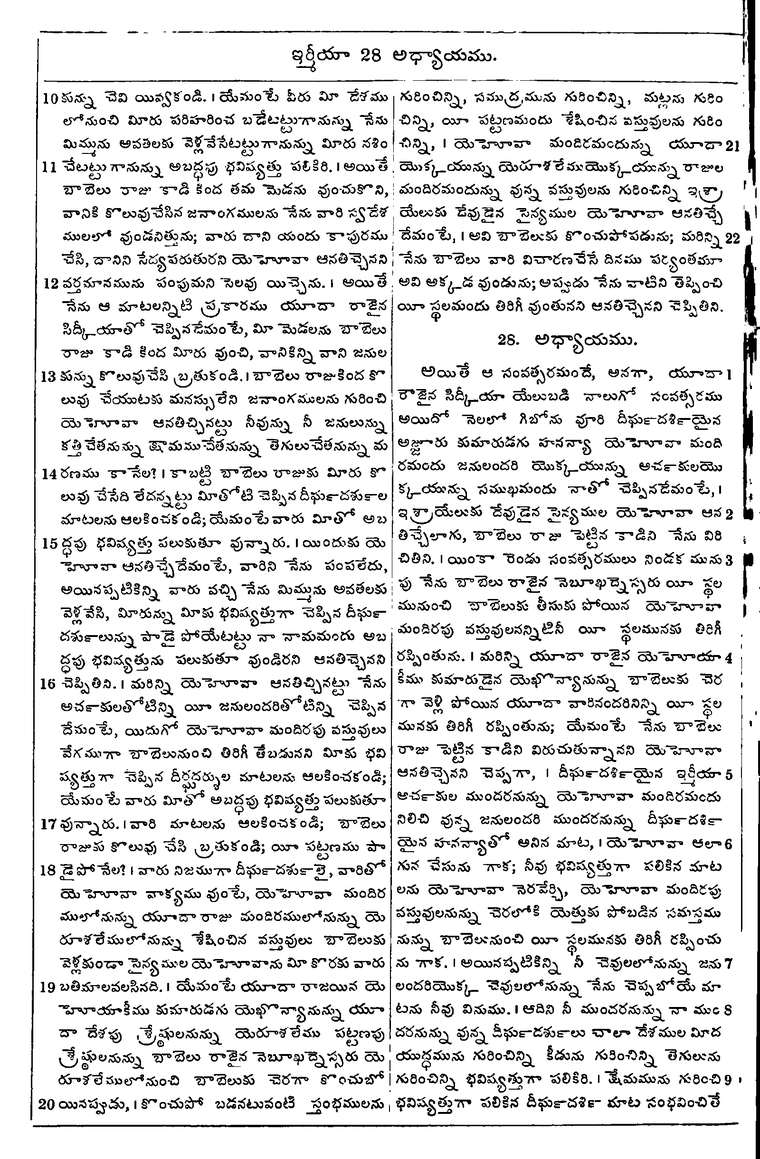 ఇర్మీయా 28 అధ్యాయము.
10 కున్ను చెవి యివ్వకండి. । యేమంటే వీరు మీ దేశము
లోనుంచి మీరు పరిహరించ బడేటట్టుగానున్ను నేను
మిమ్మును అవతలకు వెళ్లవేసేటట్టుగానున్ను మీరు నశిం
11 చేటట్టుగానున్ను అబద్ధపు భవిష్యత్తు పల్కిరి. । అయితే
బాబెలు రాజు కాడి కింద తమ మెడను వుంచుకొని,
వానికి కొలువుచేసిన జనాంగములను నేను వారి స్వదేశ
ములలో వుండనిత్తును; వారు దాని యందు కాపురము
చేసి, దానిని సేద్యపరుతురని యెహోవా ఆనతిచ్చెనని
12 వర్తమానమును పంపుమని సెలవు యిచ్చెను. । అయితే
నేను ఆ మాటలన్నిటి ప్రకారము యూదా రాజైన
సిద్కీయాతో చెప్పినదేమంటే, మీ మెడలను బాబెలు
రాజు కాడి కింద మీరు వుంచి, వానికిన్ని వాని జనుల
13 కున్ను కొలువుచేసి బ్రతుకండి. । బాబెలు రాజుకింద కొ
లువు చేయుటకు మనస్సులేని జనాంగములను గురించి
యెహోవా ఆనతిచ్చినట్టు నీవున్ను నీ జనులున్ను
కత్తిచేతనున్ను క్షామముచేతనున్ను తెగులుచేతనున్ను మ
14 రణము కానేల? । కాబట్టి బాబెలు రాజుకు మీరు కొ
లువు చేసేది లేదన్నట్టు మీతోటి చెప్పిన దీర్ఘదర్శుల
మాటలను ఆలకించకండి; యేమంటే వారు మీతో అబ
15 ద్ధపు భవిష్యత్తు పలుకుతూ వున్నారు. । యిందుకు యె
హోవా ఆనతిచ్చేదేమంటే, వారిని నేను పంపలేదు,
అయినప్పటికిన్ని వారు వచ్చి నేను మిమ్మును అవతలకు
వెళ్లవేసి, మీరున్ను మీకు భవిష్యత్తుగా చెప్పిన దీర్ఘ
దర్శులున్ను పాడై పోయేటట్టు నా నామమందు అబ
ద్ధపు భవిష్యత్తును పలుకుతూ వుండిరని ఆనతిచ్చెనని
16 చెప్పితిని. । మరిన్ని యెహోవా ఆనతిచ్చినట్టు నేను
అర్చకులతోటిన్ని యీ జనులందరితోటిన్ని చెప్పిన
దేమంటే, యిదుగో యెహోవా మందిరపు వస్తువులు
వేగముగా బాబెలునుంచి తిరిగీ తేబడునని మీకు భవి
ష్యత్తుగా చెప్పిన దీర్ఘదర్శుల మాటలను ఆలకించకండి;
యేమంటే వారు మీతో అబద్ధపు భవిష్యత్తు పలుకుతూ
17 వున్నారు. । వారి మాటలను ఆలకించకండి; బాబెలు
రాజుకు కొలువు చేసి బ్రతుకండి; యీ పట్టణము పా
18 డైపోనేల? । వారు నిజముగా దీర్ఘదర్శులై, వారితో
యెహోవా వాక్యము వుంటే, యెహోవా మందిర
ములోనున్ను యూదా రాజు మందిరములోనున్ను యె
రూశలేములోనున్ను శేషించిన వస్తువులు బాబెలుకు
వెళ్లకుండా సైన్యముల యెహోవాను మీ కొరకు వారు
19 బతిమాలవలసినది. । యేమంటే యూదా రాజయిన యె
హోయాకీము కుమారుడగు యెఖోన్యానున్ను యూ
దా దేశపు శ్రేష్ఠులనున్ను యెరూశలేము పట్టణపు
శ్రేష్ఠులనున్ను బాబెలు రాజైన నెబూఖద్నెస్సరు యె
రూశలేములోనుంచి బాబెలుకు చెరగా కొంచుబో
20 యినప్పుడు, । కొంచుపో బడనటువంటి స్తంభములను
గురించిన్ని, సముద్రమును గురించిన్ని, మట్లను గురిం
చిన్ని, యీ పట్టణమందు శేషించిన వస్తువులను గురిం
చిన్ని, । యెహోవా మందిరమందున్ను యూదా 21
యొక్కయున్ను యెరూశలేముయొక్కయున్ను రాజుల
మందిరమందున్ను వున్న వస్తువులను గురించిన్ని ఇశ్రా
యేలుకు దేవుడైన సైన్యముల యెహోవా ఆనతిచ్చే
దేమంటే, । అవి బాబెలుకు కొంచుపోపడును; మరిన్ని 22
నేను బాబెలు వారి విచారణచేసే దినము పర్యంతమూ
అవి అక్కడ వుండును; అప్పుడు నేను వాటిని తెప్పించి
యీ స్థలమందు తిరిగీ వుంతునని ఆనతిచ్చెనని చెప్పితిని.
28. అధ్యాయము.
అయితే ఆ సంవత్సరమందే, అనగా, యూదా 1
రాజైన సిద్కీయా యేలుబడి నాలుగో సంవత్సరము
అయిదో నెలలో గిబోను వూరి దీర్ఘదర్శియైన
అజ్జూరు కుమారుడగు హనన్యా యెహోవా మంది
రమందు జనులందరి యొక్కయున్ను అర్చకులయొ
క్కయున్ను సముఖమందు నాతో చెప్పినదేమంటే, ।
ఇశ్రాయేలుకు దేవుడైన సైన్యముల యెహోవా ఆన 2
తిచ్చేలాగు, బాబెలు రాజు పెట్టిన కాడిని నేను విరి
చితిని. । యింకా రెండు సంవత్సరములు నిండక మును 3
పు నేను బాబెలు రాజైన నెబూఖద్నెస్సరు యీ స్థల
మునుంచి బాబెలుకు తీసుకు పోయిన యెహోవా
మందిరపు వస్తువులనన్నిటినీ యీ స్థలమునకు తిరిగీ
రప్పింతును. । మరిన్ని యూదా రాజైన యెహోయా 4
కీము కుమారుడైన యెఖోన్యానున్ను బాబెలుకు చెర
గా వెళ్లి పోయిన యూదా వారినందరినిన్ని యీ స్థల
మునకు తిరిగీ రప్పింతును; యేమంటే నేను బాబెలు
రాజు పెట్టిన కాడిని విరుచుతున్నానని యెహోవా
ఆనతిచ్చెనని చెప్పగా, । దీర్ఘదర్శియైన ఇర్మీయా 5
అర్చకుల ముందరనున్ను యెహోవా మందిరమందు
నిలిచి వున్న జనులందరి ముందరనున్ను దీర్ఘదర్శి
యైన హనన్యాతో అనిన మాట, । యెహోవా ఆలా 6
గున చేసును గాక; నీవు భవిష్యత్తుగా పలికిన మాట
లను యెహోవా నెరవేర్చి, యెహోవా మందిరపు
వస్తువులనున్ను చెరలోకి యెత్తుకు పోబడిన సమస్తము
నున్ను బాబెలునుంచి యీ స్థలమునకు తిరిగీ రప్పించు
ను గాక. । అయినప్పటికిన్ని నీ చెవులలోనున్ను జను 7
లందరియొక్క చెవులలోనున్ను నేను చెప్పబోయే మా
టను నీవు వినుము. । ఆదిని నీ ముందరనున్ను నా ముం 8
దరనున్ను వున్న దీర్ఘదర్శులు చాలా దేశముల మీద
యుద్ధమును గురించిన్ని కీడును గురించిన్ని తెగులును
గురించిన్ని భవిష్యత్తుగా పలికిరి. । క్షేమమును గురించి 9
భవిష్యత్తుగా పలికిన దీర్ఘదర్శి మాట సంభవించితే